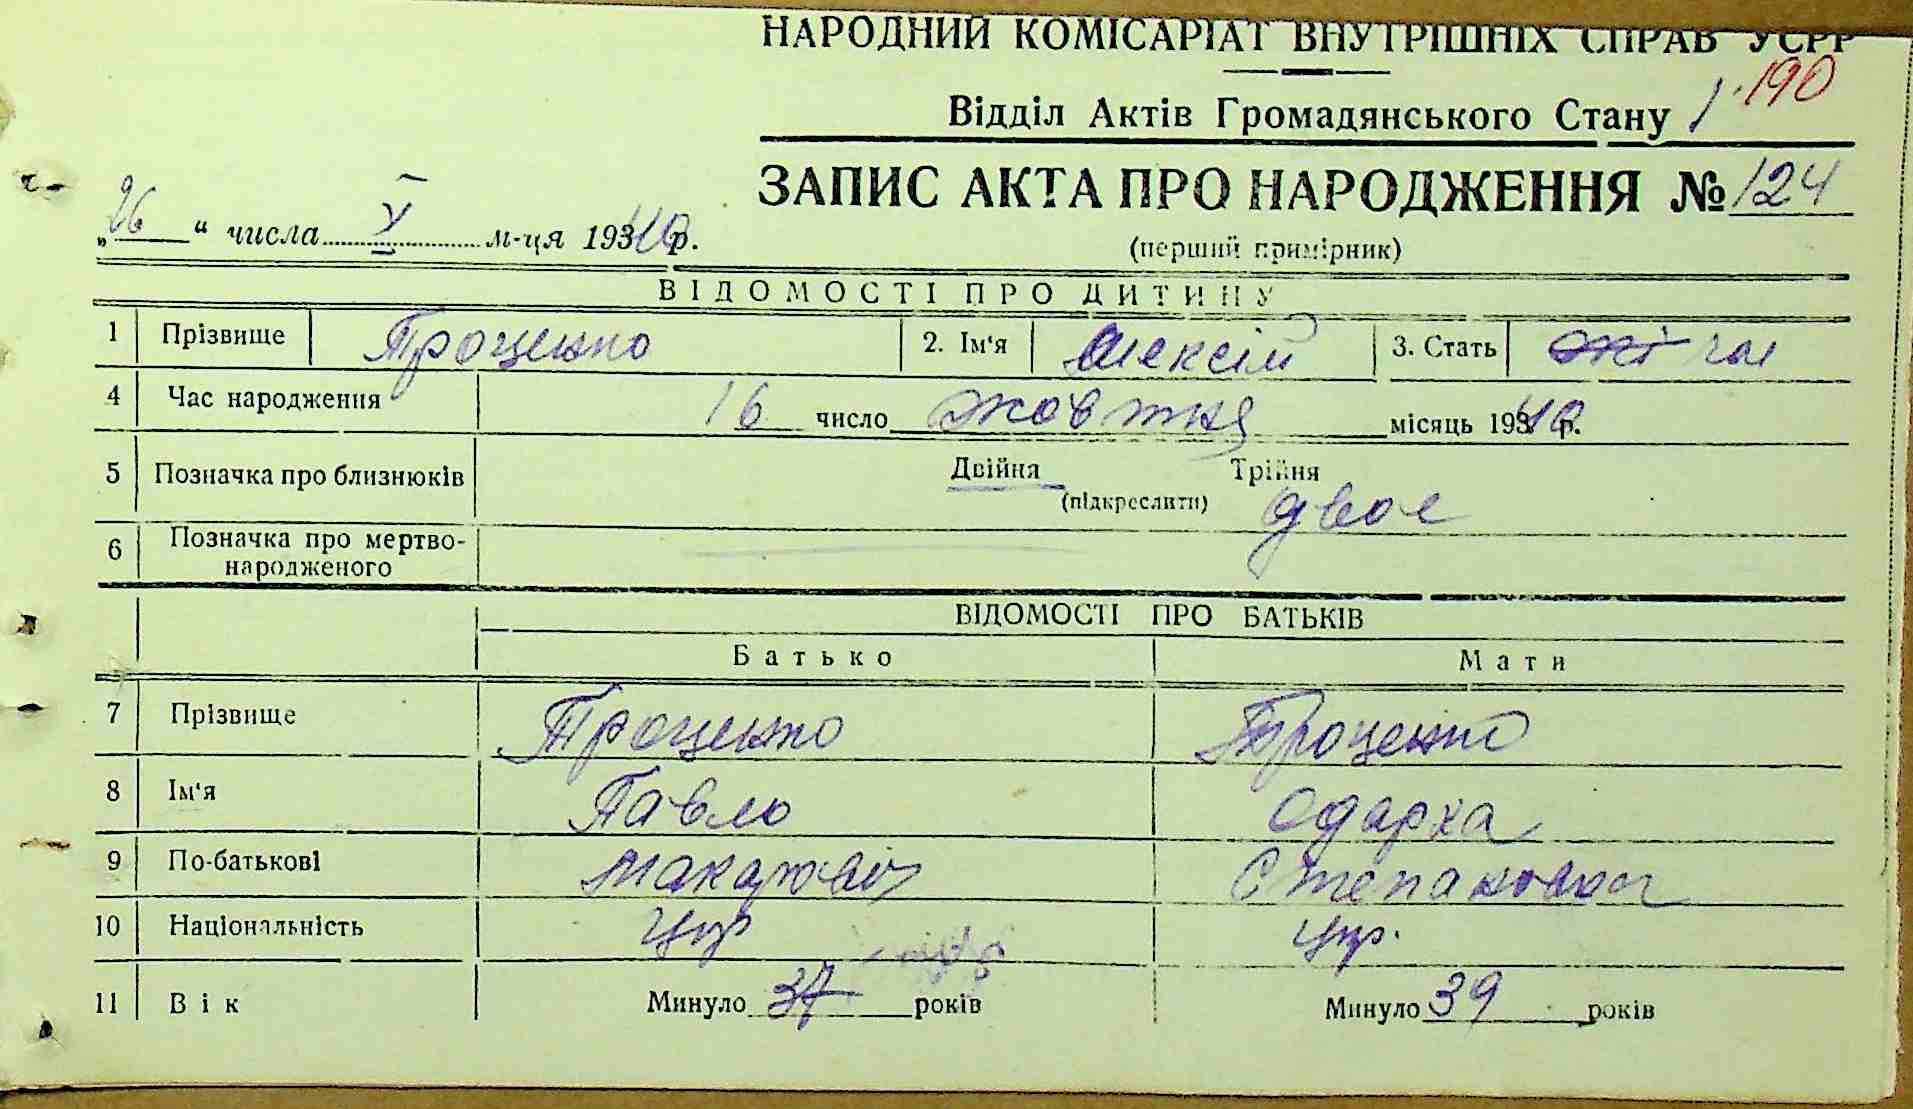 НАРОДНИЙ КОМІСАРІАТ ВНУТРІШНІХ СПРАВ УСРР
190
Відділ Актів Громадянського Стану 1
ЗАПИС АКТА ПРО НАРОДЖЕННЯ № 124
„26“ числа X м-ця 1940 р.
(перший примірник)
ВІДОМОСТІ ПРО ДИТИНУ
1 Прізвище Троценко 2. Ім'я Олексій 3. Стать чол
4 Час народження 16 число жовтня місяць 1940 р.
5 Позначка про близнюків Двійня Трійня
(підкреслити) двоє
6 Позначка про мертво-
народженого
ВІДОМОСТІ ПРО БАТЬКІВ
Батько Мати
7 Прізвище Троценко Троценко
8 Ім'я Павло Одарка
9 По-батькові Макарович Степановна
10 Національність укр укр.
11 Вік Минуло 37 років Минуло 39 років